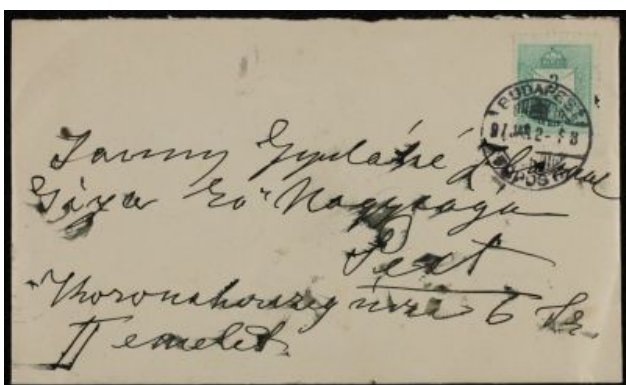 2
BUDAPEST
97 JAN 2
Gyuláné
Géza Ő Nagysága
Pest
Koronaherczeg úcza 6 Sz
II emelet